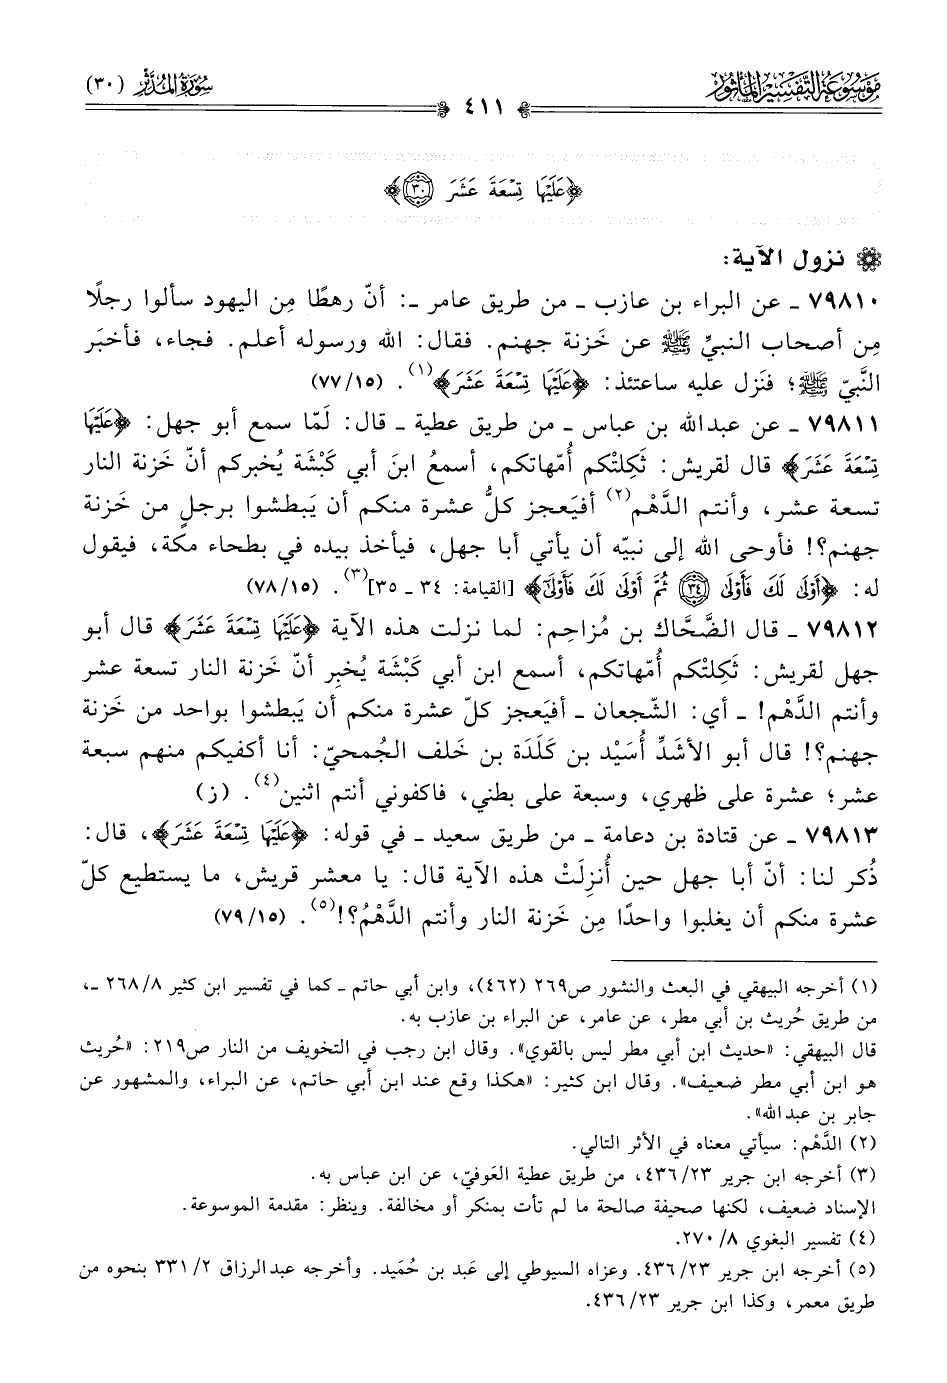 موسوعة التفسير المأثور
٤١١
سورة المدثر (٣٠)
﴿عَلَيْهَا تِسْعَةَ عَشَرَ ٣٠﴾
نزول الآية:
٧٩٨١٠ ـ عن البراء بن عازب ـ من طريق عامر ـ: أنّ رهطًا مِن اليهود سألوا رجلًا
مِن أصحاب النبيِّ ﷺ عن خَزنة جهنم. فقال: الله ورسوله أعلم. فجاء، فأخبَر
النَّبيّ ﷺ؛ فنَزل عليه ساعتئذ: ﴿عَلَيْهَا تِسْعَةَ عَشَرَ﴾(١). (٧٧/١٥)
٧٩٨١١ ـ عن عبدالله بن عباس ـ من طريق عطية ـ قال: لَمّا سمع أبو جهل: ﴿عَلَيْهَا
تِسْعَةَ عَشَرَ﴾ قال لقريش: ثَكِلتْكم أُمّهاتكم، أسمعُ ابنَ أبي كَبْشَة يُخبركم أنّ خَزنة النار
تسعة عشر، وأنتم الدَّهْم(٢) أفيَعجز كلُّ عشرة منكم أن يَبطشوا برجلٍ من خَزنة
جهنم؟! فأوحى الله إلى نبيّه أن يأتي أبا جهل، فيأخذ بيده في بطحاء مكة، فيقول
له: ﴿أَوْلَى لَكَ فَأَوْلَى ٣٤ ثُمَّ أَوْلَى لَكَ فَأَوْلَى﴾ [القيامة: ٣٤ ـ ٣٥](٣). (٧٨/١٥)
٧٩٨١٢ ـ قال الضَّحَّاك بن مُزاحِم: لما نزلت هذه الآية ﴿عَلَيْهَا تِسْعَةَ عَشَرَ﴾ قال أبو
جهل لقريش: ثَكِلتْكم أُمّهاتكم، أسمع ابن أبي كَبْشَة يُخبِر أنّ خَزنة النار تسعة عشر
وأنتم الدَّهْم! ـ أي: الشّجعان ـ أفيَعجز كلّ عشرة منكم أن يَبطشوا بواحد من خَزنة
جهنم؟! قال أبو الأشَدِّ أُسَيْد بن كَلَدَة بن خَلف الجُمحيّ: أنا أكفيكم منهم سبعة
عشر؛ عشرة على ظهري، وسبعة على بطني، فاكفوني أنتم اثنين(٤). (ز)
٧٩٨١٣ ـ عن قتادة بن دعامة ـ من طريق سعيد ـ في قوله: ﴿عَلَيْهَا تِسْعَةَ عَشَرَ﴾، قال:
ذُكر لنا: أنّ أبا جهل حين أُنزِلَتْ هذه الآية قال: يا معشر قريش، ما يستطيع كلّ
عشرة منكم أن يغلبوا واحدًا مِن خَزنة النار وأنتم الدَّهْمُ؟!(٥). (٧٩/١٥)
(١) أخرجه البيهقي في البعث والنشور ص٢٦٩ (٤٦٢)، وابن أبي حاتم ـ كما في تفسير ابن كثير ٢٦٨/٨ ـ،
من طريق حُريث بن أبي مطر، عن عامر، عن البراء بن عازب به.
قال البيهقي: «حديث ابن أبي مطر ليس بالقوي». وقال ابن رجب في التخويف من النار ص٢١٩: «حُريث
هو ابن أبي مطر ضعيف». وقال ابن كثير: «هكذا وقع عند ابن أبي حاتم، عن البراء، والمشهور عن
جابر بن عبدالله».
(٢) الدَّهْم: سيأتي معناه في الأثر التالي.
(٣) أخرجه ابن جرير ٤٣٦/٢٣، من طريق عطية العَوفيّ، عن ابن عباس به.
الإسناد ضعيف، لكنها صحيفة صالحة ما لم تأت بمنكر أو مخالفة. وينظر: مقدمة الموسوعة.
(٤) تفسير البغوي ٢٧٠/٨.
(٥) أخرجه ابن جرير ٤٣٦/٢٣. وعزاه السيوطي إلى عَبد بن حُمَيد. وأخرجه عبدالرزاق ٣٣١/٢ بنحوه من
طريق معمر، وكذا ابن جرير ٤٣٦/٢٣.